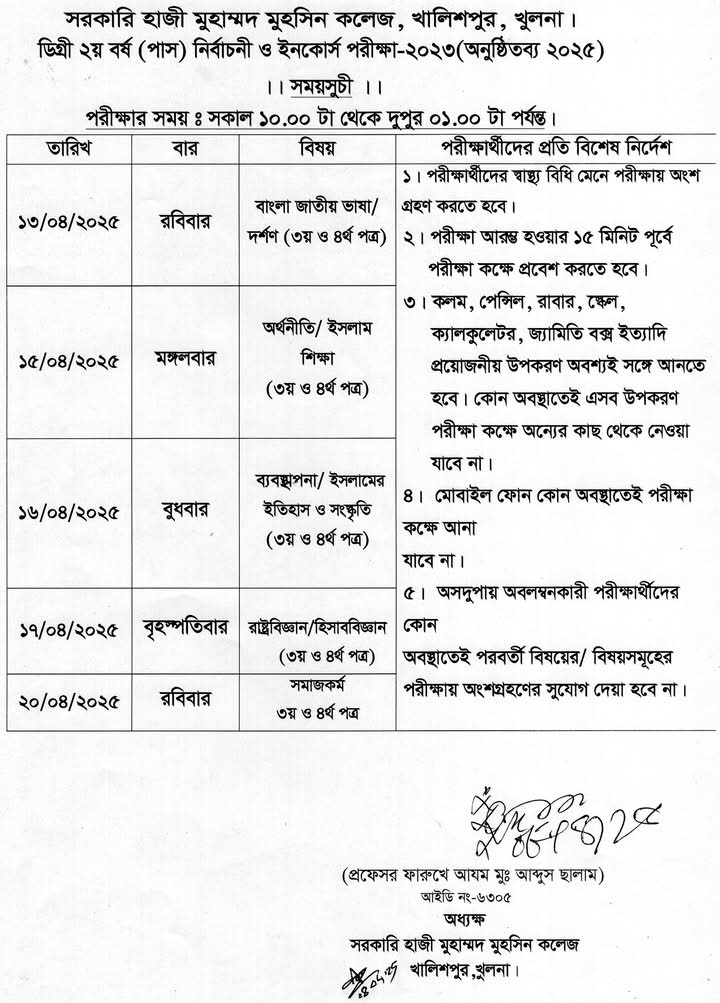 সরকারি হাজী মুহাম্মদ মুহসিন কলেজ, খালিশপুর, খুলনা।
ডিগ্রী ২য় বর্ষ (পাস) নির্বাচনী ও ইনকোর্স পরীক্ষা-২০২৩(অনুষ্ঠিতব্য ২০২৫)
।। সময়সূচী ।।
পরীক্ষার সময় ঃ সকাল ১০.০০ টা থেকে দুপুর ০১.০০ টা পর্যন্ত।
তারিখ বার বিষয় পরীক্ষার্থীদের প্রতি বিশেষ নির্দেশ
১৩/০৪/২০২৫ রবিবার
বাংলা জাতীয় ভাষা/
দর্শণ (৩য় ও ৪র্থ পত্র)
১৫/০৪/২০২৫ মঙ্গলবার
অর্থনীতি/ ইসলাম
শিক্ষা
(৩য় ও ৪র্থ পত্র)
১৬/০৪/২০২৫ বুধবার
ব্যবস্থাপনা/ ইসলামের
ইতিহাস ও সংস্কৃতি
(৩য় ও ৪র্থ পত্র)
১৭/০৪/২০২৫ বৃহস্পতিবার রাষ্ট্রবিজ্ঞান/হিসাববিজ্ঞান
(৩য় ও ৪র্থ পত্র)
২০/০৪/২০২৫ রবিবার
সমাজকর্ম
৩য় ও ৪র্থ পত্র
১। পরীক্ষার্থীদের স্বাস্থ্য বিধি মেনে পরীক্ষায় অংশ
গ্রহণ করতে হবে।
২। পরীক্ষা আরম্ভ হওয়ার ১৫ মিনিট পূর্বে
পরীক্ষা কক্ষে প্রবেশ করতে হবে।
৩। কলম, পেন্সিল, রাবার, স্কেল,
ক্যালকুলেটর, জ্যামিতি বক্স ইত্যাদি
প্রয়োজনীয় উপকরণ অবশ্যই সঙ্গে আনতে
হবে। কোন অবস্থাতেই এসব উপকরণ
পরীক্ষা কক্ষে অন্যের কাছ থেকে নেওয়া
যাবে না।
৪। মোবাইল ফোন কোন অবস্থাতেই পরীক্ষা
কক্ষে আনা
যাবে না।
৫। অসদুপায় অবলম্বনকারী পরীক্ষার্থীদের
কোন
অবস্থাতেই পরবর্তী বিষয়ের/ বিষয়সমূহের
পরীক্ষায় অংশগ্রহণের সুযোগ দেয়া হবে না।
(প্রফেসর ফারুখে আযম মুঃ আব্দুস ছালাম)
আইডি নং-৬৩০৫
অধ্যক্ষ
সরকারি হাজী মুহাম্মদ মুহসিন কলেজ
খালিশপুর,খুলনা।